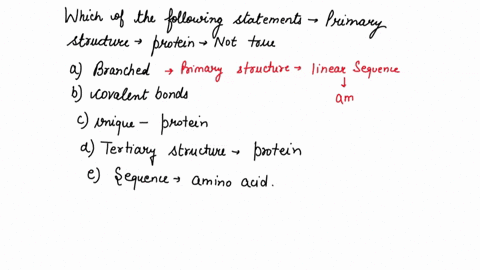 Which of the following statements → Primary
structure → protein → Not true
a) Branched → Primary structure → linear Sequence
↓
am
b) covalent bonds
c) unique - protein
d) Tertiary structure → protein
e) Sequence → amino acid.